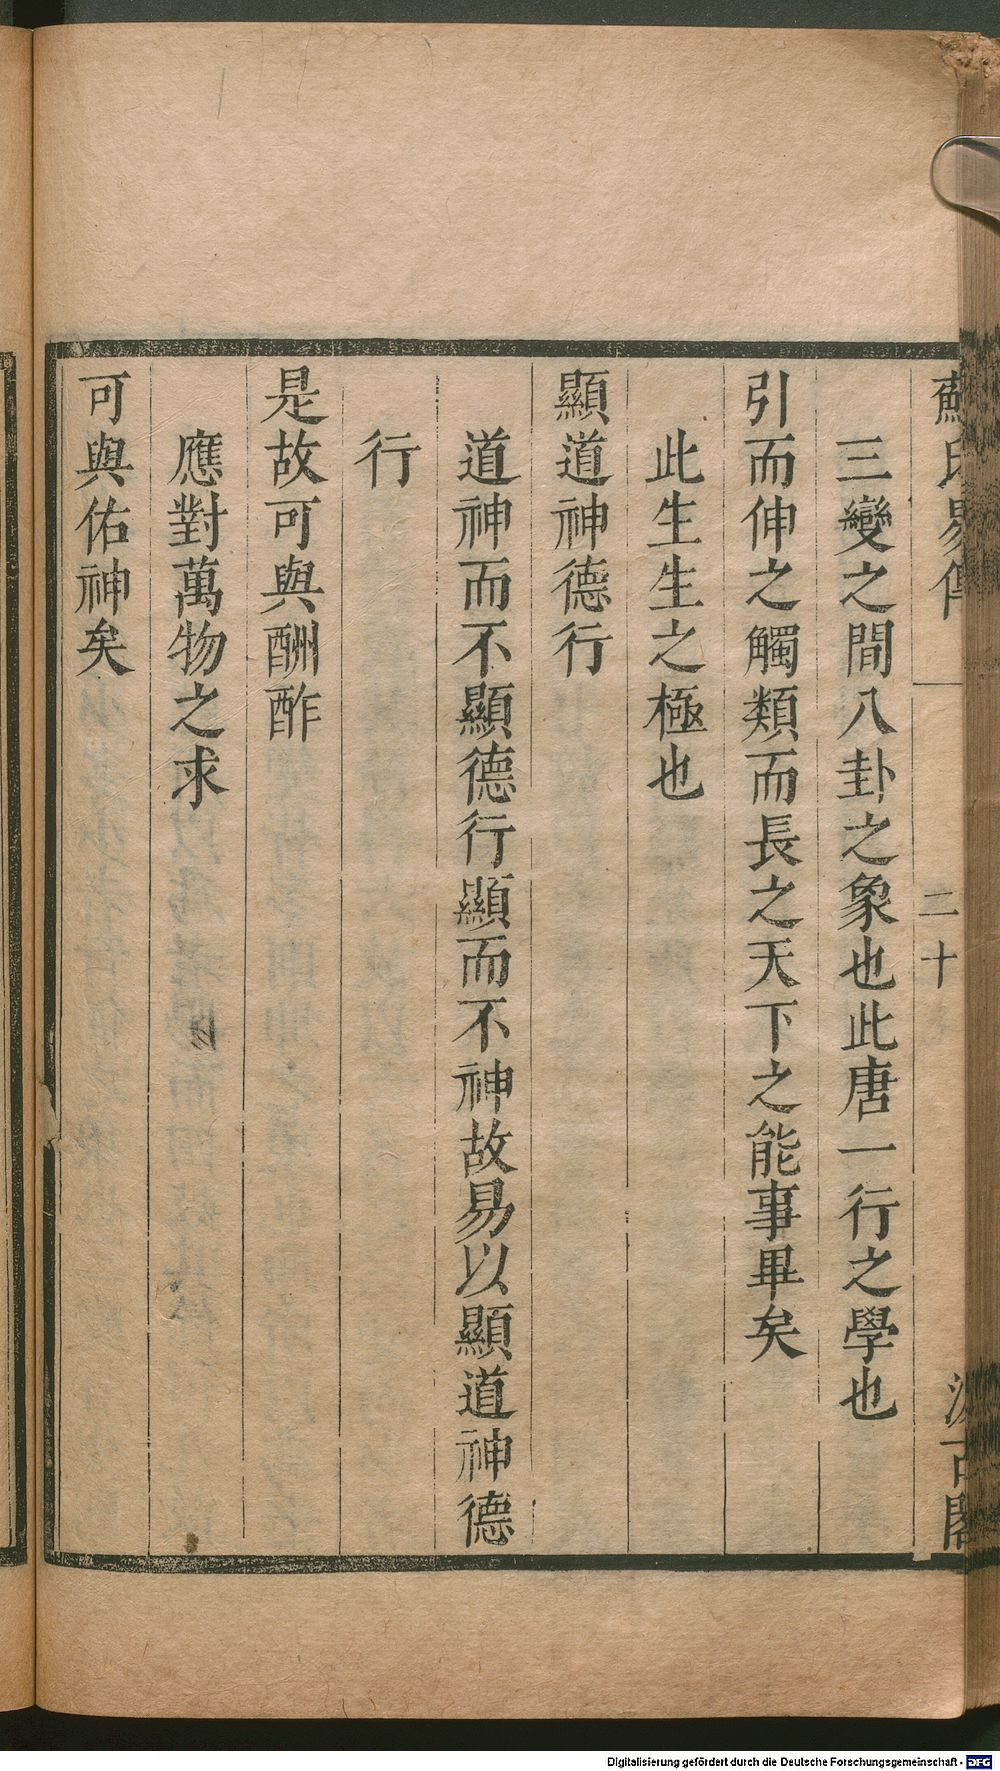 蘇氏易傳 二十 汲古閣
三變之間八卦之象也此唐一行之學也
引而伸之觸類而長之天下之能事畢矣
此生生之極也
顯道神德行
道神而不顯德行顯而不神故易以顯道神德
行
是故可與酬酢
應對萬物之求
可與佑神矣
Digitalisierung gefördert durch die Deutsche Forschungsgemeinschaft - DFG